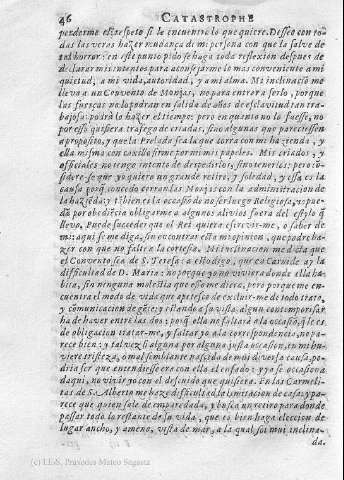 46 CATASTROPHE
perderme el respeto si le encuentro lo que quiere. Desseo con to-
das las veras hazer mudança de mi persona con que la salve de
tal horror: en este punto pido se haga toda reflexion despues de
declarar mis intentos para aconsejarme lo mas conveniente a mi
quietud, a mi vida, autoridad, y a mi alma. Mi inclinació me
lleva a un Convento de Monjas, no para entrar a serlo, porque
las fuerças no lo podran en salida de años de esclavitud tan tra-
bajosa: podrà lo hazer el tiempo: pero en quanto no lo fuesse, no
por esso quisiera tratar de criadas, sino algunas que pareciessen
a proposito, y que la Prelada sea la que corra con mi hazienda, y
ella misma con vozes firme por mi mis papeles. Mis criados, y
officiales no tengo intento de despedirlos, sino tenerlos: pero cō-
sidere se que yo quiero un grande retiro, y soledad, y essa es la
causa porq̃ concedo corran las Monjas con la administracion de
la haziēda; y tãbien es la occasiõ de no ser luego Religiosa, y pue-
da por obediēcia obligarme a algunos alivios fuera del estylo q̃
llevo. Puede succeder que el Rei quiera escrivirme, o saber de
mi: aqui se me diga, si no encontra esto mi opinion, que podrè ha-
zer con que no falte a la cortesia. Mi inclinaciõ me dizia que
el Convento sea de S. Teresa: a esso digo, que en Carnide ay la
difficultad de D. Maria: no porque yo no viviera donde ella ha-
bita, sin ninguna molestia que esso me diera, pero porque me en-
cuentra el modo de vida que apetesco de excluir-me de todo trato,
y comunicacion de gẽte; y estando a su vista, algun contemporisar
ha de haver entre las dos: porq̃ ella no faltarà a la occasiõ, q̃ les
de obligacion tratar-me, y faltar yo a la correspondencia, no pa-
rece bien: y tal vez si alguna por alguna justa occasion, en mi hu-
viere tristeza, o mal semblante nascido de mi diversa causa, po-
dria ser que entendiesse era con ella el enfado: y para se occasiona
daqui, no vivir yo con el descuido que quisiera. En las Carmeli-
tas de S. Alberto me haze difficultad la limitacion de casa; y pare-
ce que quien sale de emparedada, y busca un retiro para donde
passar todo lo restante de su vida, que es bien haga eleccion de
lugar ancho, y ameno, vista de mar, a la qual soi mui inclina-
da.
(c) I.E.S. Práxedes Mateo Sagasta